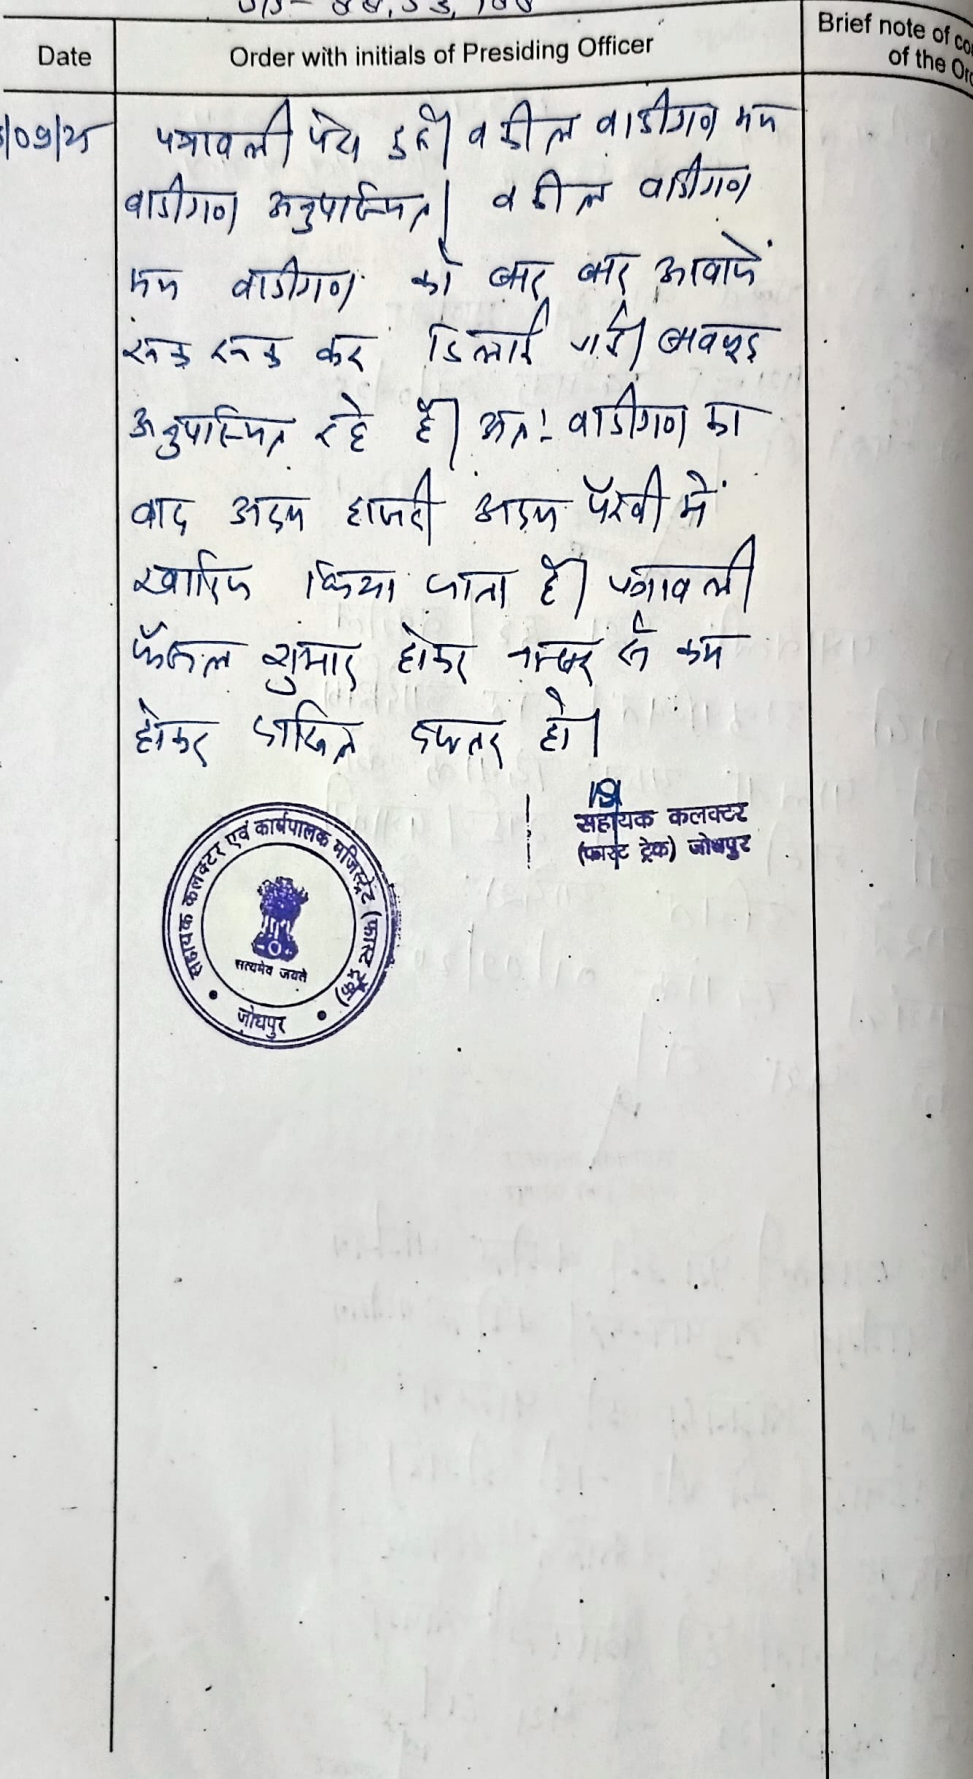 Date
Order with initials of Presiding Officer
Brief note of
of the
/09/25
पत्रावली पेश हुई। वकील वादीगण मय
वादीगण अनुपस्थित। वकील वादीगण
मय वादीगण को बार बार आवाजें
रूक रूक कर दिलाई गई। बावजूद
अनुपस्थित रहे है। अतः वादीगण का
वाद अदम हाजरी अदम पैरवी में
खारिज किया जाता है। पत्रावली
फैसल शुमार होकर नम्बर से कम
होकर दाखिल दफ्तर हो।
सहायक कलक्टर
(फास्ट ट्रेक) जोधपुर
सहायक कलक्टर एवं कार्यपालक मजिस्ट्रेट (फास्ट ट्रैक)
सत्यमेव जयते
जोधपुर